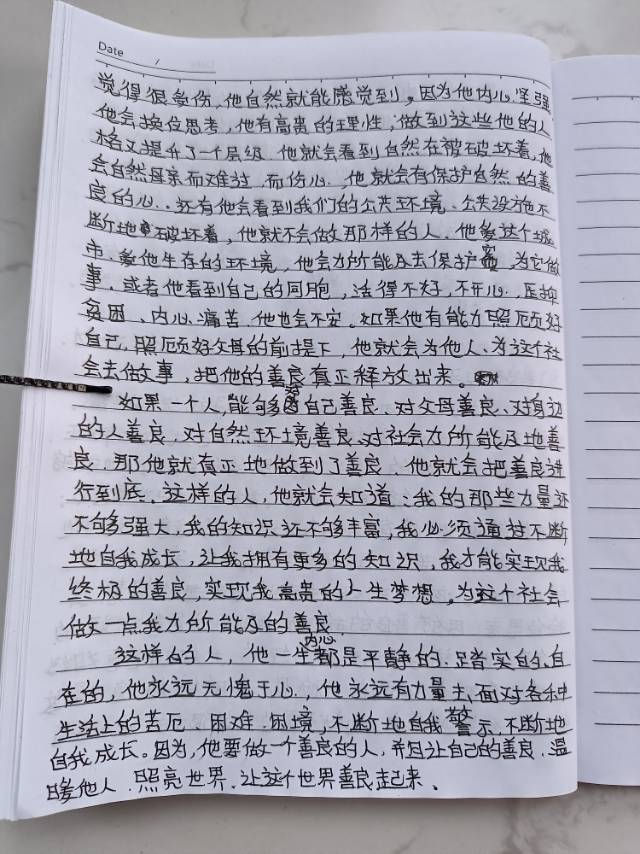 Date /
觉得很受伤,他自然就能感觉到,因为他内心坚强
他会换位思考,他有高贵的理性,做到这些他的人
格又提升了一个层级,他就会看到自然在被破坏着,他
会自然母亲而难过,而伤心,他就会有保护自然的善
良的心.还有他会看到我们的公共环境、公共设施不
断地破坏着,他就不会做那样的人,他爱这个城
市,爱他生存的环境,他会力所能及去保护,为它做
事,或者他看到自己的同胞,活得不好,不开心,压抑
贫困、内心痛苦,他也会不安.如果他有能力照顾好
自己,照顾好父母的前提下,他就会为他人、为这个社
会去做事,把他的善良真正释放出来。
如果一个人,能够给自己善良、对父母善良、对身边
的人善良、对自然环境善良、对社会力所能及地善
良,那他就真正地做到了善良,他就会把善良进
行到底.这样的人,他就会知道:我的那些力量还
不够强大,我的知识还不够丰富,我必须通过不断
地自我成长,让我拥有更多的知识,我才能实现我
终极的善良,实现我高贵的人生梦想,为这个社会
做一点我力所能及的善良
这样的人,他一生内心都是平静的.踏实的、自
在的,他永远无愧于心,他永远有力量去面对各种
生活上的苦厄、困难、困境,不断地自我警示,不断地
自我成长。因为,他要做一个善良的人,并且让自己的善良、温
暖他人、照亮世界、让这个世界善良起来、